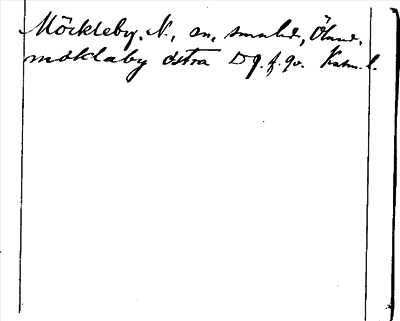 Möckleby, N., sn, Smål., Öland.
möklaby östra D 9. f. 90. Kalm. l.